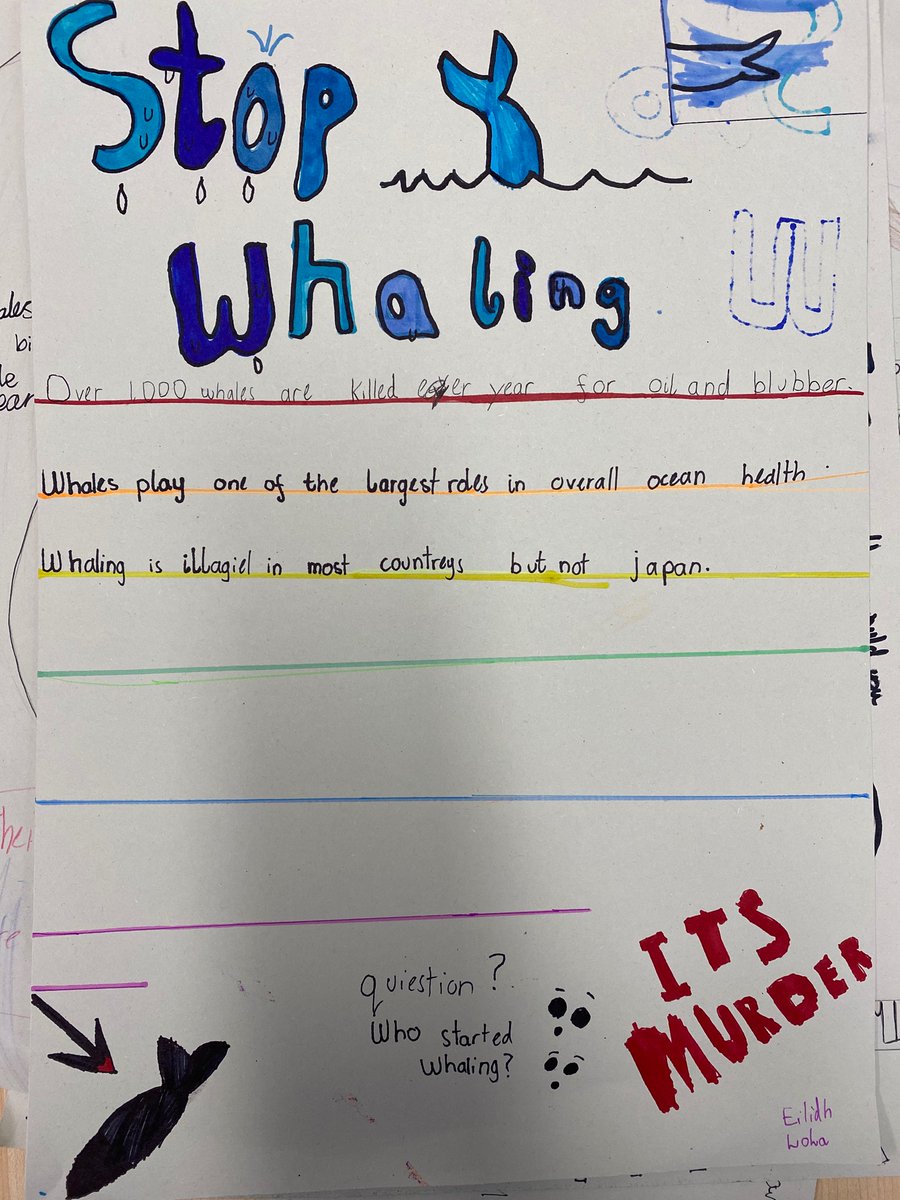 Stop
Whaling
W
Over 1000 whales are killed ever year for oil and blubber.
Whales play one of the largest roles in overall ocean health.
Whaling is illagiel in most countreys but not japan.
quiestion?
Who started
Whaling?
ITS
MURDER
Eilidh